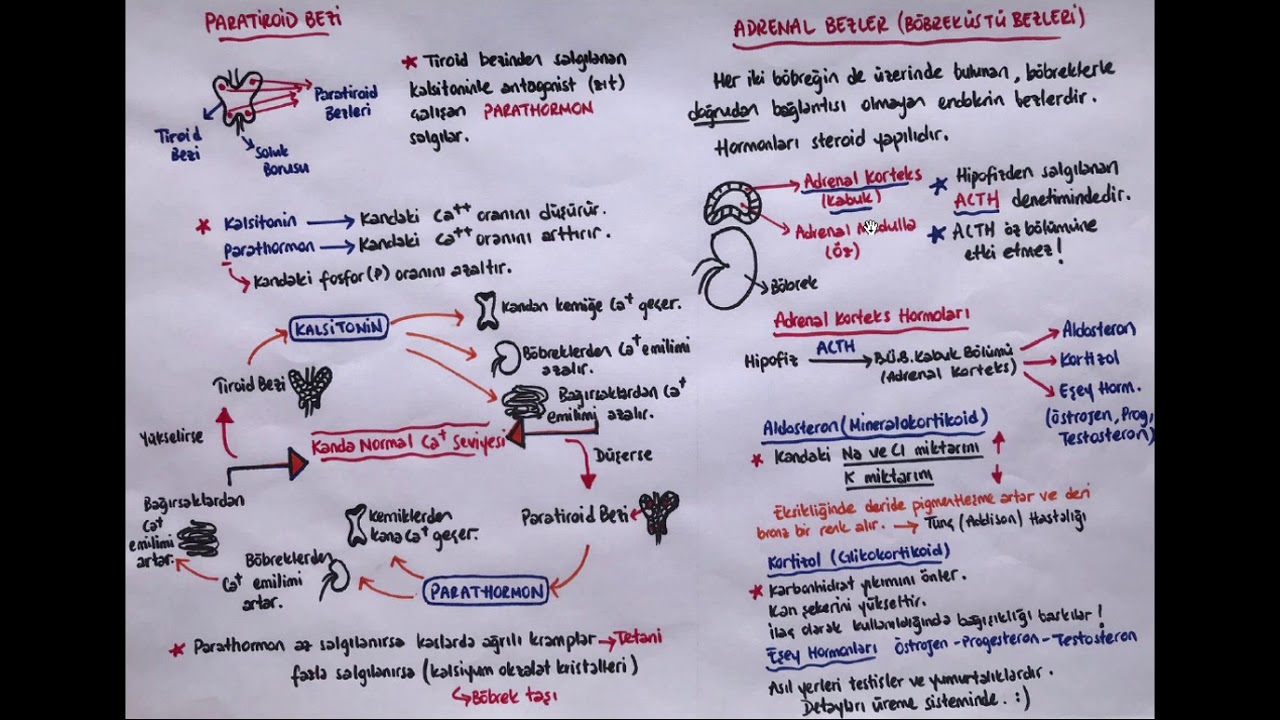 PARATİROİD BEZİ
Paratiroid
Bezleri
Tiroid
Bezi
Soluk
Borusu
* Tiroid bezinden salgılanan
kalsitoninle antagonist (zıt)
çalışan PARATHORMON
salgılar.
* Kalsitonin → Kandaki Ca++ oranını düşürür.
Parathormon → Kandaki Ca++ oranını arttırır.
↳ Kandaki fosfor (P) oranını azaltır.
KALSİTONİN
Kandan kemiğe Ca+ geçer.
Böbreklerden Ca+ emilimi
azalır.
Bağırsaklardan Ca+
emilimi azalır.
Tiroid Bezi
Yükselirse
Kanda Normal Ca+ Seviyesi
Düşerse
Paratiroid Bezi
PARATHORMON
Kemiklerden
kana Ca+ geçer.
Böbreklerden
Ca+ emilimi
artar.
Bağırsaklardan
Ca+
emilimi
artar.
* Parathormon az salgılanırsa kaslarda ağrılı kramplar → Tetani
fazla salgılanırsa (kalsiyum okzalat kristalleri)
↳ Böbrek taşı
ADRENAL BEZLER (BÖBREKÜSTÜ BEZLERİ)
Her iki böbreğin de üzerinde bulunan, böbreklerle
doğrudan bağlantısı olmayan endokrin bezlerdir.
Hormonları steroid yapılıdır.
Adrenal Korteks
(Kabuk)
Adrenal Medulla
(Öz)
Böbrek
* Hipofizden salgılanan
ACTH denetimindedir.
* ACTH öz bölümüne
etki etmez!
Adrenal Korteks Hormoları
Hipofiz ACTH → B.Ü.B. Kabuk Bölümü
(Adrenal Korteks)
Aldosteron
Kortizol
Eşey Horm.
(Östrojen, Prog,
Testosteron)
Aldosteron (Mineralokortikoid)
* Kandaki Na ve Cl miktarını ↑
K miktarını ↓
Eksikliğinde deride pigmentleşme artar ve deri
bronz bir renk alır. → Tunç (Addison) Hastalığı
Kortizol (Glikokortikoid)
* Karbonhidrat yıkımını önler.
Kan şekerini yükseltir.
İlaç olarak kullanıldığında bağışıklığı baskılar!
Eşey Hormonları Östrojen - Progesteron - Testosteron
Asıl yerleri testisler ve yumurtalıklardır.
Detayları üreme sisteminde. :)